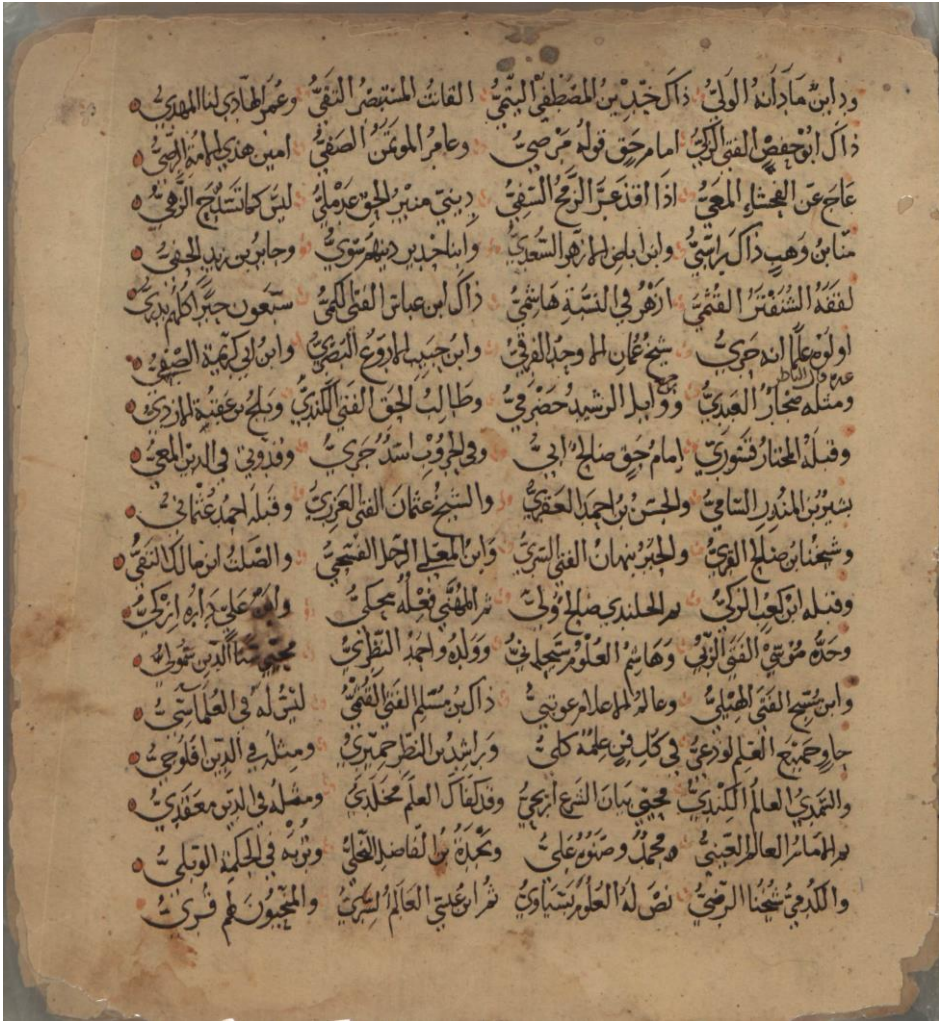 ودابن ماد أنه الولي ذاك خدين المصطفى اليتمي القانت المنتصر النقي وعمر الهادي لنا المهدي
ذاك ابو حفص الفتى الزكي امام حق قوله مرضي وعامر الموتمن الصفي امين هذي الامة الرضي
عاج عن الفحشاء المعي اذا اقذعر الزمح السفي ديني منير الحق عدملي ليس كما تسدج الزهي
منا بن وهب ذاك براسبي وابن اباض الازهر السعدي وابنا خدير دينهم سوي وجابر بن زيد الحفي
لفقه الشنفتر القثمي ازهر في النسبة هاشمي ذاك ابن عباس الفتى الكمي سبعون حبرا كلهم بدري
اولوه علما انه حري شيخ عمان الاوحد الفرقي وابن حبيب الاروع البصري وابن ابي كريمة الصفي
ومثله صحار العبدي ووايل الرشيد حضرمي وطالب الحق الفتى الكندي وبلج بن عقبة الازدي
وقبله المختار فتنوري امام حق صالح ابي وفي الحروب اسد جري وقدوتي في الدين المعي
بشير بن المنذر السامي والحسن بن احمد العقري والشيخ عثمان الفتى العزري وقبله احمد عثماني
وشيخنا بن صالح القري والحبر نبهان الفتى السري وابن المعلى الرجل الفشحي والصلت ابن مالك النقي
وقبله ابن كعب الزكي ثم الجلندي صالح ولي ثم المهنى فعله محكي وابن علي داره ازكي
وجده موسى الفتى الزبي وهاشم العلوم سيجاني وولده واحمد النظري
وابن مسبح الفتى الهيلي وعالم الاعلام عوتبي ذاك بن مسلم الفتى القثمي ليس له في العلما سي
حاو جميع العلم لوذعي في كل فن علمه كلي وراشد بن النظر حميري ومثله في الدين افلوجي
والثمدي العالم الكندي محيي بيان الشرع اريحي وقد كفاك العلم مخلدي ومثله في الدين معقدي
ثم الامام العالم العيني محمد وصنوه علي ونجدة بن الفاضل النخلي وتربه في الحكمة الوبلي
والكدمي شيخنا الرضي نص له العلوم بستياوي ثم ابن عيسى العالم السري والمحبون لهم فري